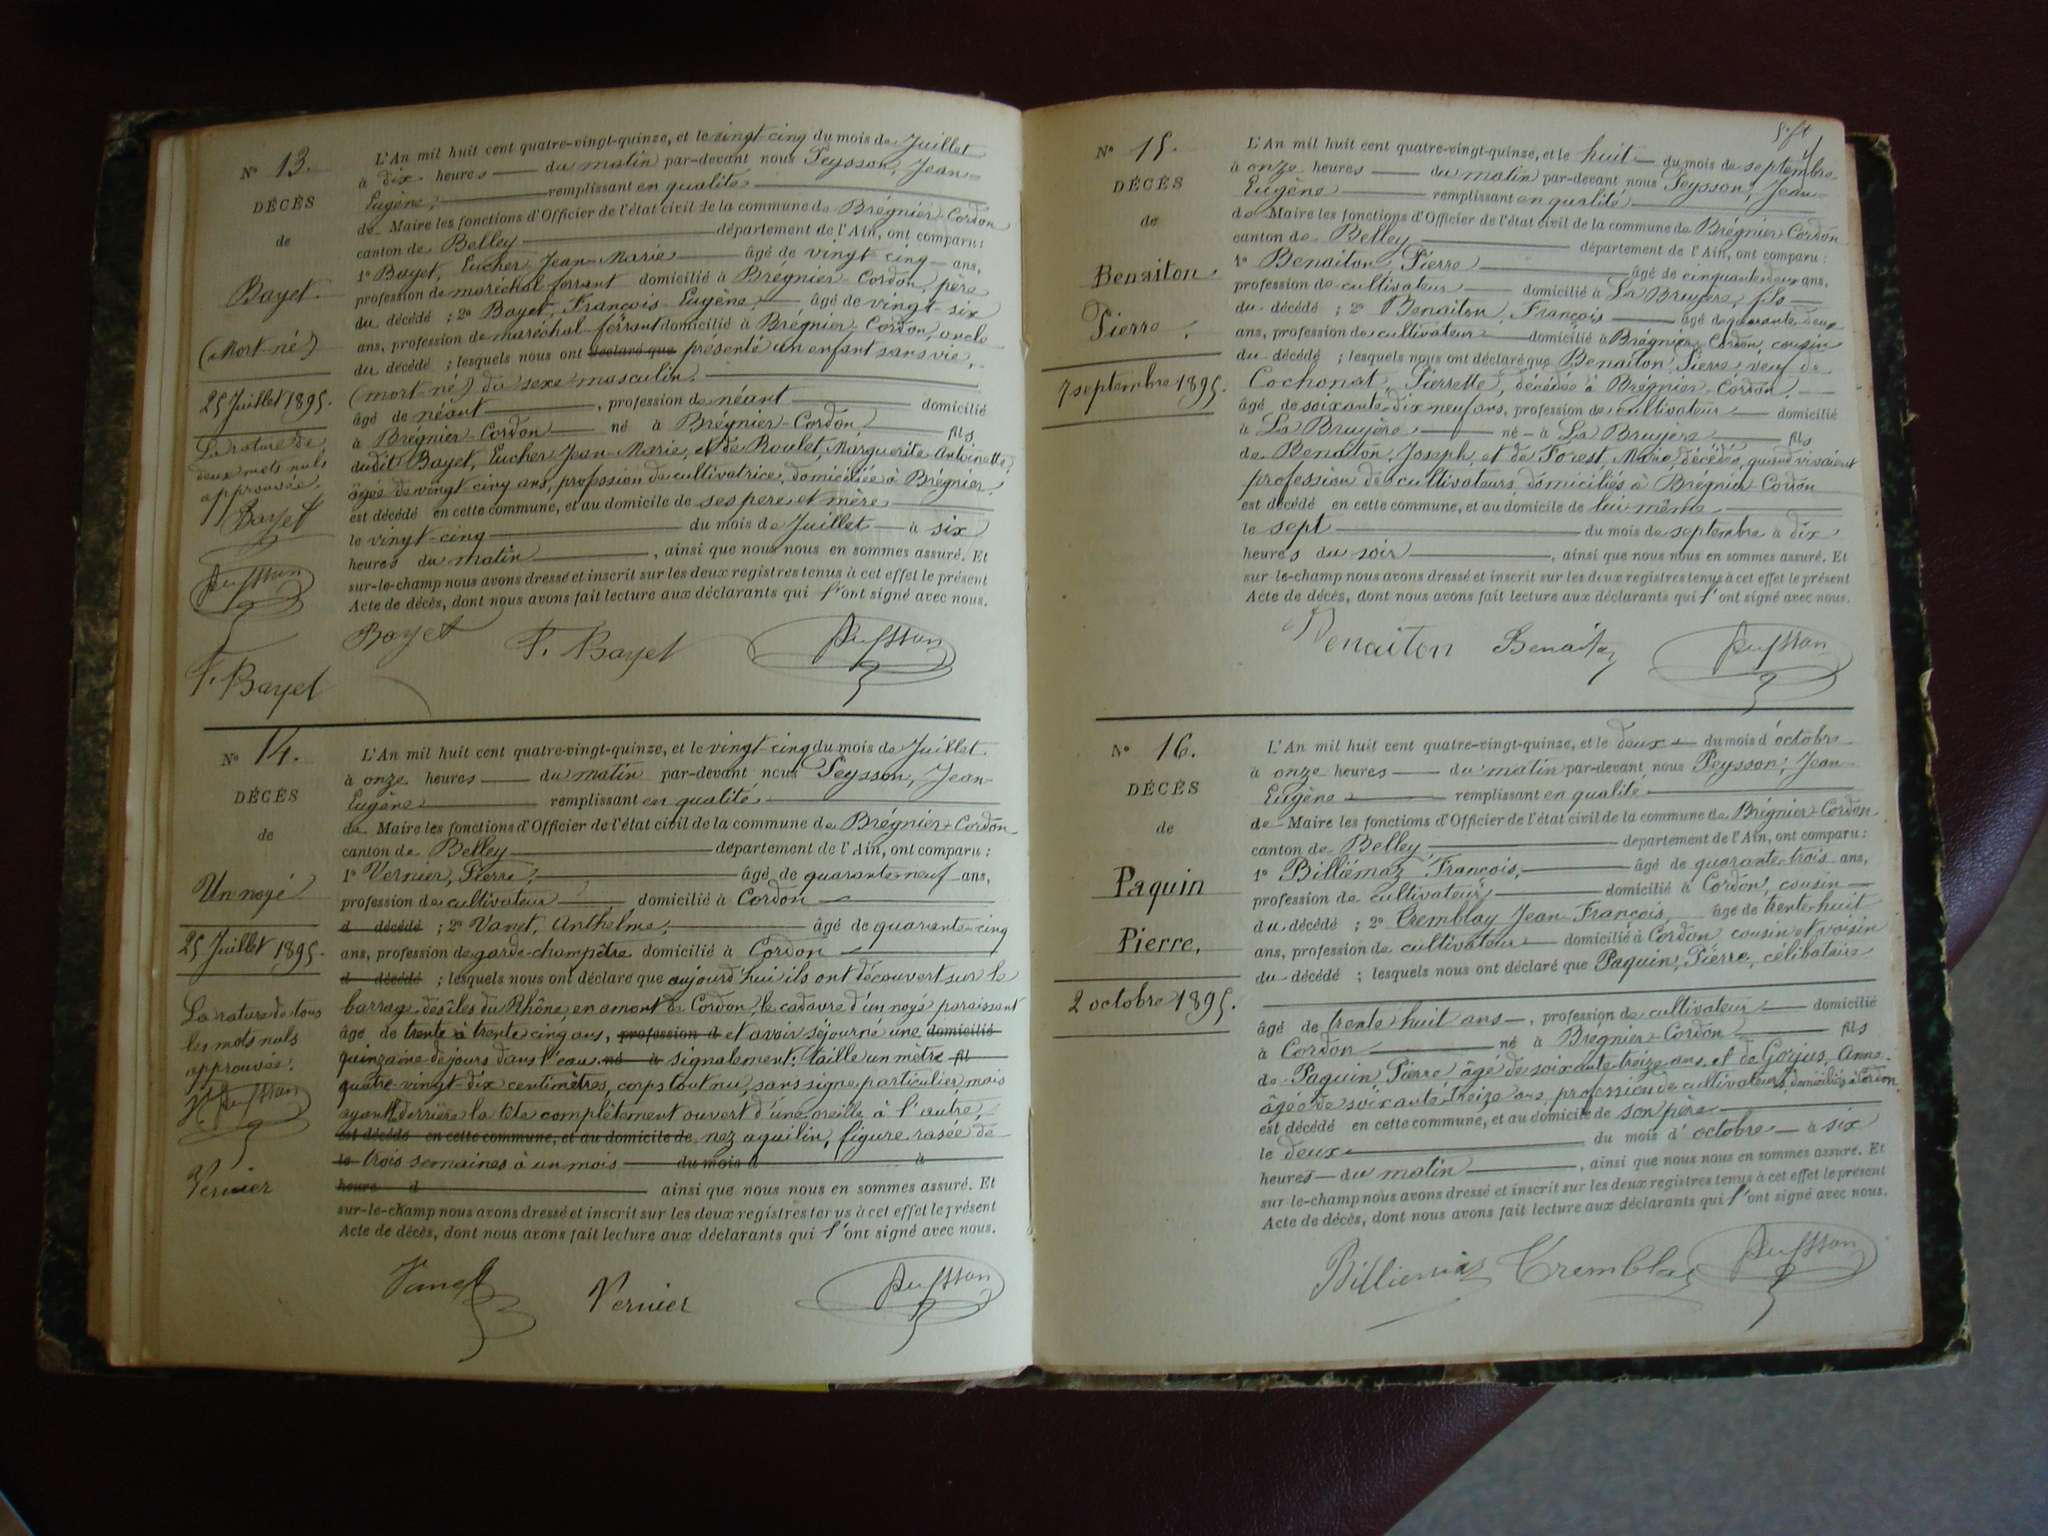 N° 13.
DÉCÈS
de
Bayet
(Mort-né)
25 Juillet 1895.
La rature de
deux mots nuls
approuvée.
Bayet
Peysson
F. Bayet
L'An mil huit cent quatre-vingt-quinze, et le vingt-cinq du mois de Juillet
à dix heures du matin par-devant nous Peysson, Jean-
Eugène, remplissant en qualité
de Maire les fonctions d'Officier de l'état civil de la commune de Brégnier-Cordon
canton de Belley département de l'Ain, ont comparu:
1° Bayet, Eucher Jean-Marie âgé de vingt-cinq ans,
profession de maréchal ferrant domicilié à Brégnier-Cordon, père
du décédé ; 2° Bayet, François-Eugène, âgé de vingt-six
ans, profession de maréchal-ferrant domicilié à Brégnier-Cordon, oncle
du décédé ; lesquels nous ont declaré que présenté un enfant sans vie,
(mort-né) du sexe masculin.
âgé de néant, profession de néant domicilié
à Brégnier-Cordon né à Brégnier-Cordon fils
dudit Bayet, Eucher Jean-Marie, et de Roulet, Marguerite-Antoinette,
âgée de vingt cinq ans, profession de cultivatrice, domiciliée à Brégnier.
est décédé en cette commune, et au domicile de ses pere et mère
le vingt-cinq du mois de Juillet à six
heures du matin, ainsi que nous nous en sommes assuré. Et
sur-le-champ nous avons dressé et inscrit sur les deux registres tenus à cet effet le présent
Acte de décès, dont nous avons fait lecture aux déclarants qui l'ont signé avec nous.
Bayet F. Bayet Peysson
N° 14.
DÉCÈS
de
Un noyé
25 Juillet 1895.
La rature de tous
les mots nuls
approuvée.
Peysson
Vernier
L'An mil huit cent quatre-vingt-quinze, et le vingt-cinq du mois de Juillet
à onze heures du matin par-devant nous Peysson, Jean-
Eugène remplissant en qualité
de Maire les fonctions d'Officier de l'état civil de la commune de Brégnier-Cordon
canton de Belley département de l'Ain, ont comparu :
1° Vernier, Pierre, âgé de quarante-neuf ans,
profession de cultivateur domicilié à Cordon
d décédé ; 2° Vanet, Anthelme, âgé de quarante-cinq
ans, profession de garde-champêtre domicilié à Cordon
d décédé ; lesquels nous ont déclaré que aujourd'hui ils ont découvert sur le
barrage des îles du Rhône en amont de Cordon, le cadavre d'un noyé paraissant
âgé de trente à trente cinq ans, profession d et avoir séjourné une domicilié
quinzaine de jours dans l'eau né à signalement: taille un mètre fil
quatre-vingt dix centimètres, corps tout nu, sans signe particulier mais
ayant derrière la tête complètement ouvert d'une oreille à l'autre,
est décédé en cette commune, et au domicile de nez aquilin, figure rasée de
le trois semaines à un mois du mois d à
heure d ainsi que nous nous en sommes assuré. Et
sur-le-champ nous avons dressé et inscrit sur les deux registres tenus à cet effet le présent
Acte de décès, dont nous avons fait lecture aux déclarants qui l'ont signé avec nous.
Vanet Vernier Peysson
N° 15.
DÉCÈS
de
Benaiton
Pierre.
7 septembre 1895.
L'An mil huit cent quatre-vingt-quinze, et le huit du mois de septembre
à onze heures du matin par-devant nous Peysson, Jean-
Eugène remplissant en qualité
de Maire les fonctions d'Officier de l'état civil de la commune de Brégnier-Cordon
canton de Belley département de l'Ain, ont comparu :
1° Benaiton, Pierre âgé de cinquante deux ans,
profession de cultivateur domicilié à La Bruyère, fils
du décédé ; 2° Benaiton, François âgé de quarante deux
ans, profession de cultivateur domicilié à Brégnier-Cordon, cousin
du décédé ; lesquels nous ont déclaré que Benaiton, Pierre, veuf de
Cochonat, Pierrette, décédée à Brégnier-Cordon.
âgé de soixante-dix neuf ans, profession de cultivateur domicilié
à La Bruyère né à La Bruyère fils
de Benaiton, Joseph, et de Forest, Marie, décédés, quand vivaient
profession de cultivateurs, domiciliés à Brégnier-Cordon
est décédé en cette commune, et au domicile de lui-même
le sept du mois de septembre à dix
heures du soir, ainsi que nous nous en sommes assuré. Et
sur le-champ nous avons dressé et inscrit sur les deux registres tenus à cet effet le présent
Acte de décès, dont nous avons fait lecture aux déclarants qui l'ont signé avec nous.
Benaiton Benaiton Peysson
N° 16.
DÉCÈS
de
Paquin
Pierre,
2 octobre 1895.
L'An mil huit cent quatre-vingt-quinze, et le deux du mois d'octobre
à onze heures du matin par-devant nous Peysson, Jean
Eugène remplissant en qualité
de Maire les fonctions d'Officier de l'état civil de la commune de Brégnier-Cordon
canton de Belley département de l'Ain, ont comparu :
1° Billiémaz François, âgé de quarante-trois ans,
profession de cultivateur, domicilié à Cordon, cousin
du décédé ; 2° Tremblay Jean-François, âgé de trente-huit
ans, profession de cultivateur domicilié à Cordon cousin et voisin
du décédé ; lesquels nous ont déclaré que Paquin, Pierre, célibataire
âgé de trente huit ans, profession de cultivateur domicilié
à Cordon né à Brégnier-Cordon fils
de Paquin, Pierre âgé de soixante treize ans, et de Gorjus, Anne-
âgée de soixante-treize ans profession de cultivateurs, domiciliés à Cordon
est décédé en cette commune, et au domicile de son père
le deux du mois d'octobre à six
heures du matin, ainsi que nous nous en sommes assuré. Et
sur le-champ nous avons dressé et inscrit sur les deux registres tenus à cet effet le présent
Acte de décès, dont nous avons fait lecture aux déclarants qui l'ont signé avec nous.
Billiemaz Tremblay Peysson